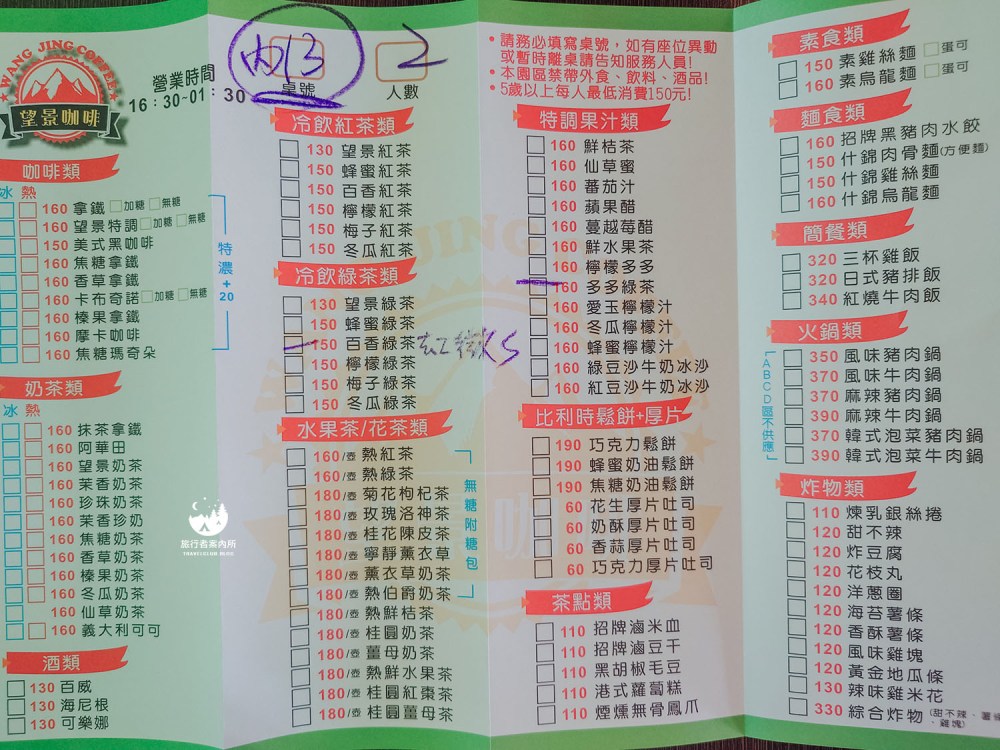 WANG JING COFFEE
望景咖啡
營業時間
16：30-01：30
咖啡類
冰 熱
160 拿鐵 □加糖 □無糖
160 望景特調 □加糖 □無糖
150 美式黑咖啡
160 焦糖拿鐵
160 香草拿鐵
160 卡布奇諾 □加糖 □無糖
160 榛果拿鐵
160 摩卡咖啡
160 焦糖瑪奇朵
特濃+20
奶茶類
冰 熱
160 抹茶拿鐵
160 阿華田
160 望景奶茶
160 茉香奶茶
160 珍珠奶茶
160 茉香珍奶
160 焦糖奶茶
160 香草奶茶
160 榛果奶茶
160 冬瓜奶茶
160 仙草奶茶
160 義大利可可
酒類
130 百威
130 海尼根
130 可樂娜
內13
桌號
2
人數
冷飲紅茶類
130 望景紅茶
150 蜂蜜紅茶
150 百香紅茶
150 檸檬紅茶
150 梅子紅茶
150 冬瓜紅茶
冷飲綠茶類
130 望景綠茶
150 蜂蜜綠茶
150 百香綠茶
150 檸檬綠茶
150 梅子綠茶
150 冬瓜綠茶
水果茶/花茶類
160/壺 熱紅茶
160/壺 熱綠茶
180/壺 菊花枸杞茶
180/壺 玫瑰洛神茶
180/壺 桂花陳皮茶
180/壺 寧靜薰衣草
180/壺 薰衣草奶茶
180/壺 熱伯爵奶茶
180/壺 熱鮮桔茶
180/壺 桂圓奶茶
180/壺 薑母奶茶
180/壺 熱鮮水果茶
180/壺 桂圓紅棗茶
180/壺 桂圓薑母茶
無糖附糖包
旅行者案內所
•請務必填寫桌號，如有座位異動
或暫時離桌請告知服務人員!
•本園區禁帶外食、飲料、酒品!
•5歲以上每人最低消費150元!
特調果汁類
160 鮮桔茶
160 仙草蜜
160 蕃茄汁
160 蘋果醋
160 蔓越莓醋
160 鮮水果茶
160 檸檬多多
160 多多綠茶
160 愛玉檸檬汁
160 冬瓜檸檬汁
160 蜂蜜檸檬汁
160 綠豆沙牛奶冰沙
160 紅豆沙牛奶冰沙
比利時鬆餅+厚片
190 巧克力鬆餅
190 蜂蜜奶油鬆餅
190 焦糖奶油鬆餅
60 花生厚片吐司
60 奶酥厚片吐司
60 香蒜厚片吐司
60 巧克力厚片吐司
茶點類
110 招牌滷米血
110 招牌滷豆干
110 黑胡椒毛豆
110 港式蘿蔔糕
110 煙燻無骨鳳爪
素食類
150 素雞絲麵 □蛋可
160 素烏龍麵 □蛋可
麵食類
160 招牌黑豬肉水餃
150 什錦肉骨麵(方便麵)
150 什錦雞絲麵
160 什錦烏龍麵
簡餐類
320 三杯雞飯
320 日式豬排飯
340 紅燒牛肉飯
火鍋類
350 風味豬肉鍋
370 風味牛肉鍋
370 麻辣豬肉鍋
390 麻辣牛肉鍋
370 韓式泡菜豬肉鍋
390 韓式泡菜牛肉鍋
ABCD區不供應
炸物類
110 煉乳銀絲捲
120 甜不辣
120 炸豆腐
120 花枝丸
120 洋蔥圈
120 海苔薯條
120 香酥薯條
120 風味雞塊
120 黃金地瓜條
130 辣味雞米花
330 綜合炸物 (甜不辣、薯條
、雞塊)